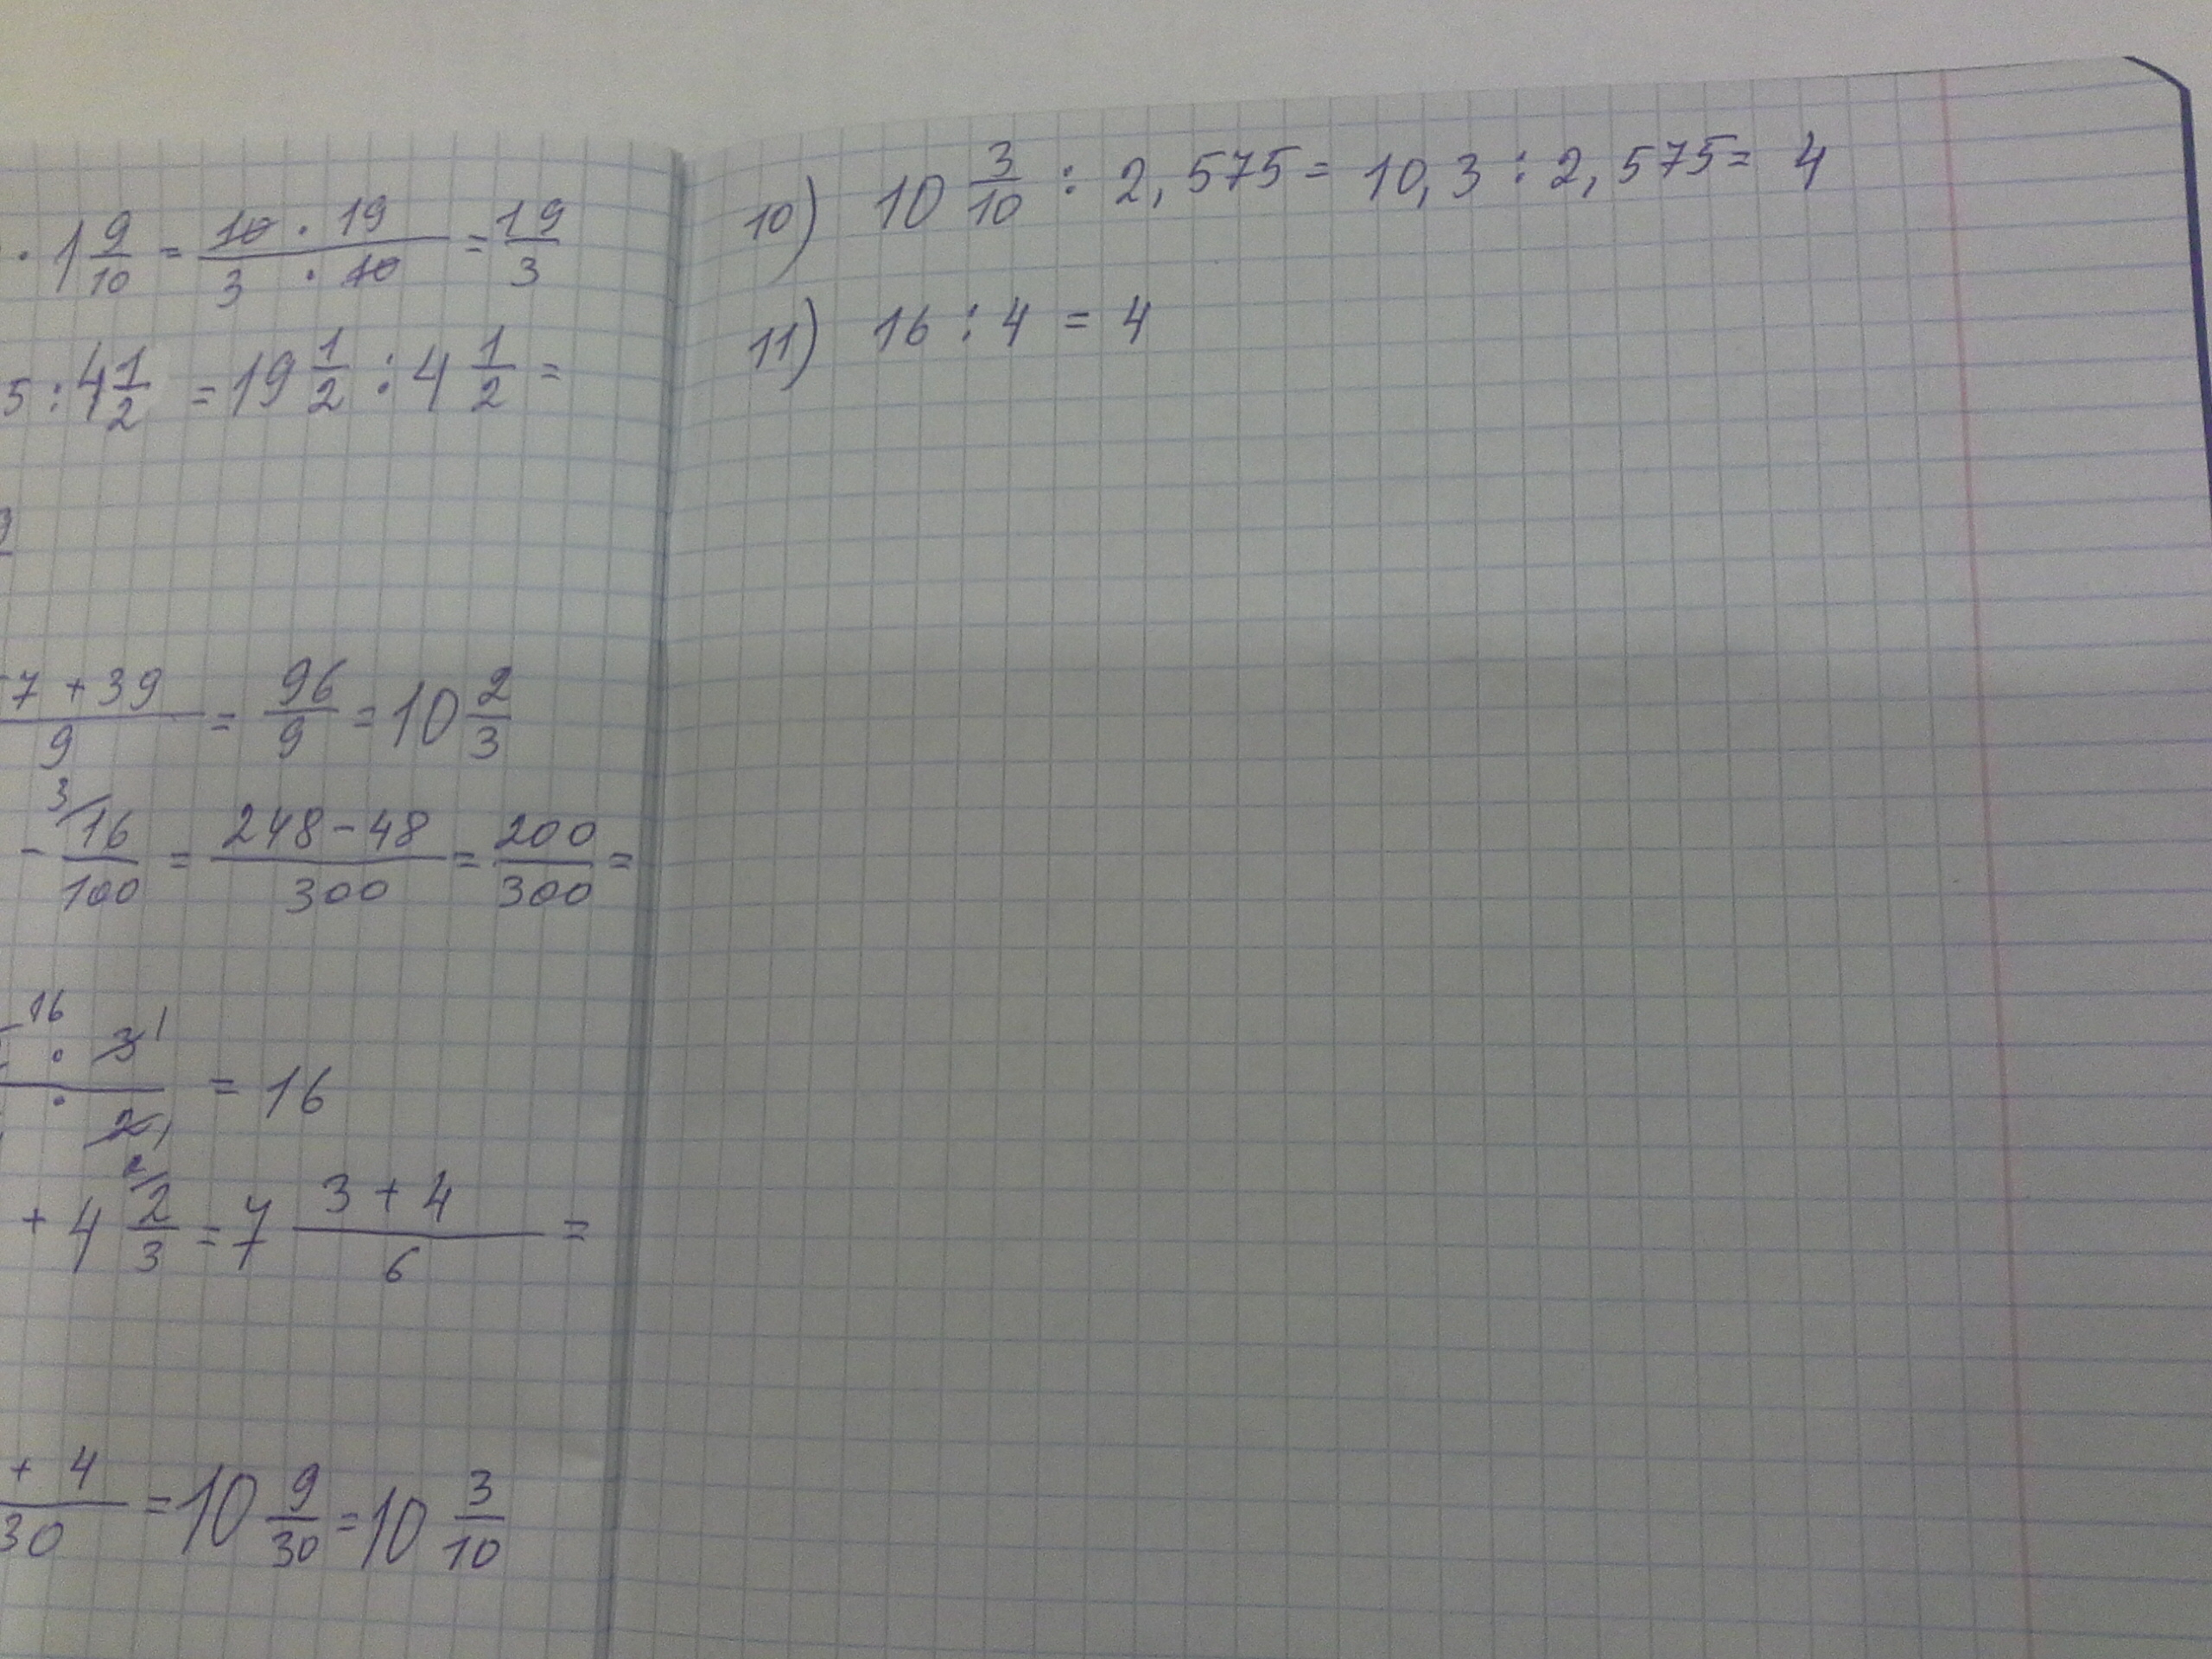 · 1 9/10 = 10 · 19 / 3 · 10 = 19/3
5 : 4 1/2 = 19 1/2 : 4 1/2 =
7 + 39 / 9 = 96/9 = 10 2/3
- 3/ 16/100 = 248 - 48 / 300 = 200/300 =
16 · 3 1 / · 2 1 = 16
+ 4 2/ 2/3 = 7 3 + 4 / 6 =
+ 4 / 30 = 10 9/30 = 10 3/10
10) 10 3/10 : 2,575 = 10,3 : 2,575 = 4
11) 16 : 4 = 4